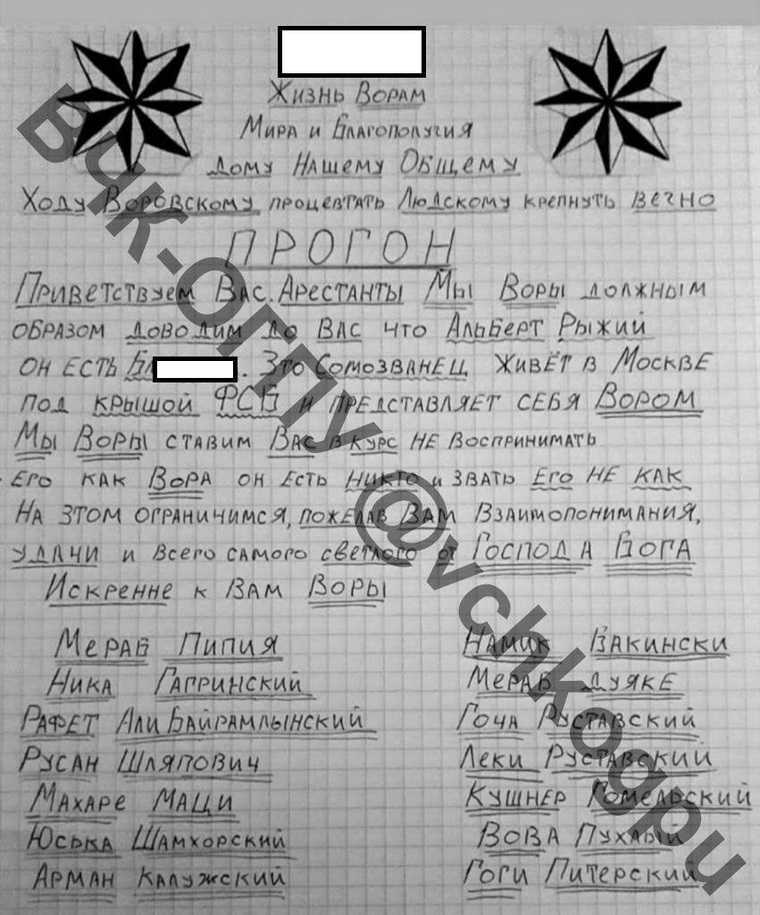 Жизнь Ворам
Мира и Благополучия
Дому Нашему Общему
Ходу Воровскому процветать Людскому крепнуть вечно
ПРОГОН
Приветствуем Вас. Арестанты Мы Воры должным
образом доводим до Вас что Альберт Рыжий
он есть Бл. Это Сомозванец живёт в Москве
под крышой ФСБ и представляет себя Вором
Мы Воры ставим Вас в курс не воспринимать
Его как Вора он есть никто и звать Его не как
На этом ограничимся, пожелав Вам взаимопонимания,
удачи и всего самого светлого от Господа Бога
Искренне к Вам Воры
Мераб Пипия
Ника Гагринский
Рафет Али Байрамлынский
Русан Шляпович
Махаре Маци
Юська Шамхорский
Арман Калужский
Намик Бакински
Мераб Дуяке
Гоча Руставский
Леки Руставский
Кушнер Гомельский
Вова Пухлый
Гоги Питерский
ВЧК-ОГПУ @vchkogpu